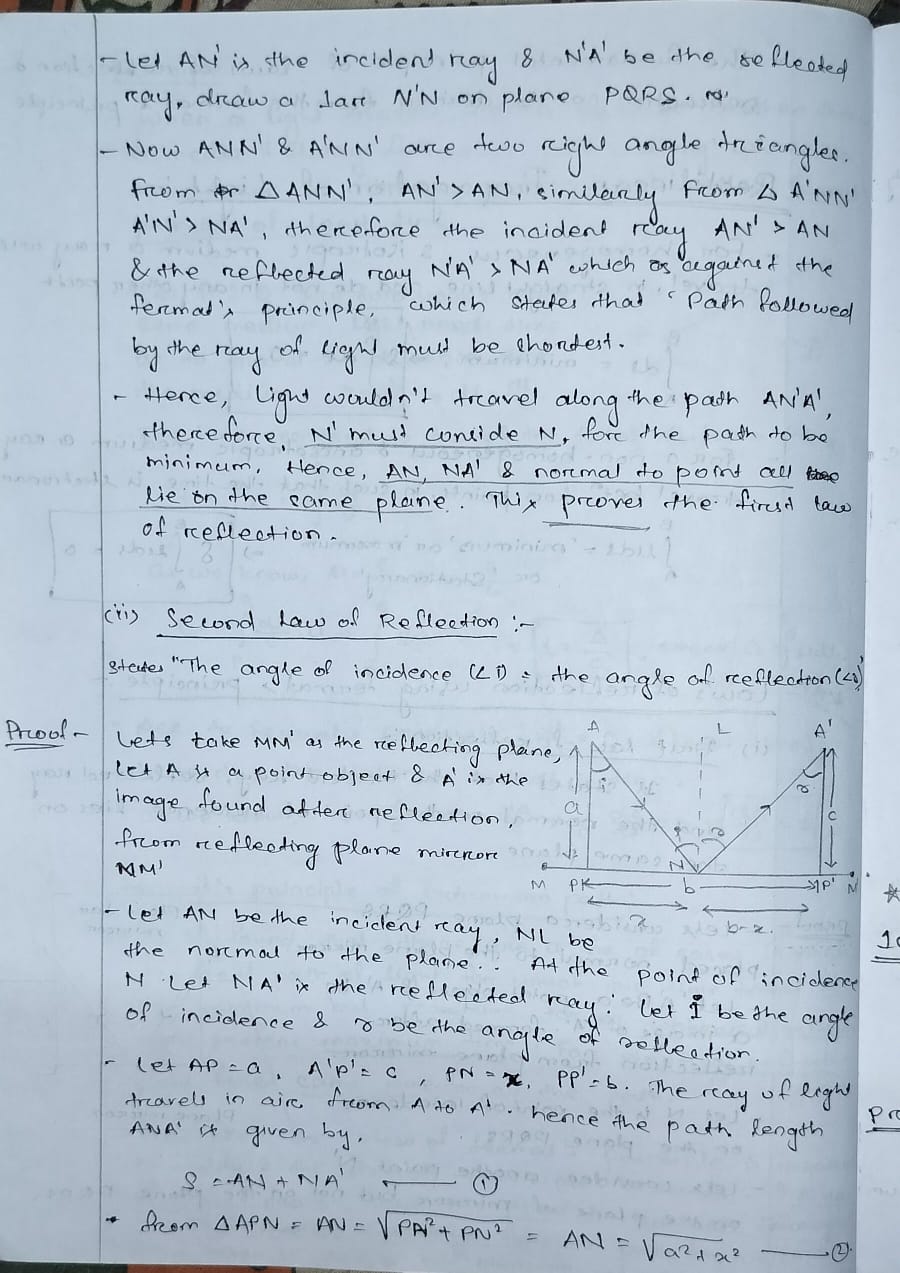 - Let AN' is the incident ray & N'A' be the reflected
ray, draw a Iarr N'N on plane PQRS.
- Now ANN' & A'NN' are two right angle triangles.
from △ANN', AN' > AN, similarly from △ A'NN'
A'N' > NA', therefore the incident ray AN' > AN
& the reflected ray N'A' > NA' which is against the
fermat's principle, which states that "Path followed
by the ray of light must be shortest.
- Hence, light wouldn't travel along the path AN'A',
therefore N' must conside N, for the path to be
minimum, Hence, AN, NA' & normal to point all
lie on the same plane. This proves the first law
of reflection.
(ii) Second Law of Reflection :-
States "The angle of incidence (∠i) = the angle of reflection (∠r)
Proof - Lets take MM' as the reflecting plane,
Let A is a point object & A' is the
image found after reflection,
from reflecting plane mirror
MM'
A L A'
i r
a c
i r
N
M P b P' M'
x b-x.
- Let AN be the incident ray, NL be
the normal to the plane.. At the point of incidence
N Let NA' is the reflected ray. Let i be the angle
of incidence & r be the angle of reflection.
- Let AP = a, A'P' = c, PN = x, PP' = b. The ray of light
travels in air from A to A'. hence the path length
ANA' is given by,
S = AN + NA' —— ①
from △APN = AN = √PA² + PN² = AN = √a² + x² —— ②